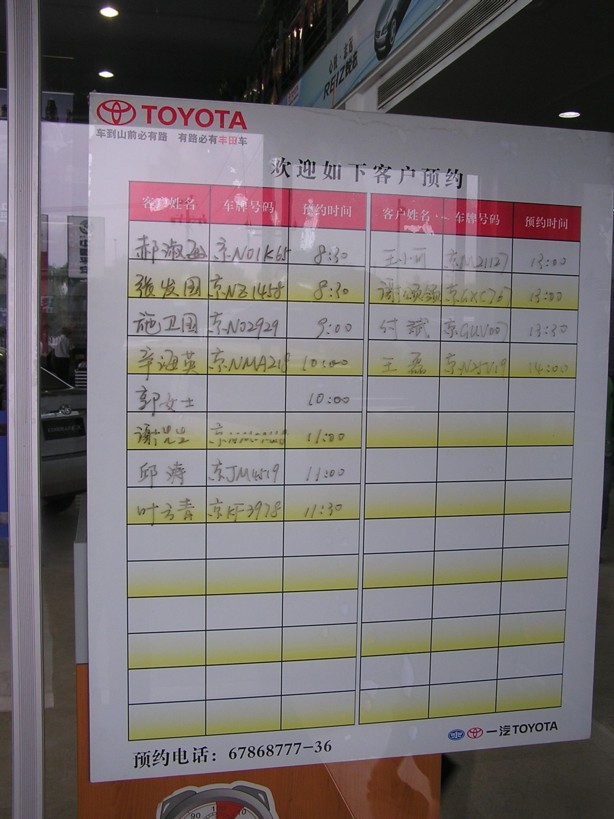 心悦·在握
REIZ锐志
TOYOTA
车到山前必有路 有路必有丰田车
欢迎如下客户预约
客户姓名 车牌号码 预约时间 客户姓名 车牌号码 预约时间
郝淑 京N01K65 8:30 王小 京M21127 13:00
张发国 京NZ1458 8:30 谢 13:00
施卫国 京N02929 9:00 付斌 京GUV007 13:30
辛海英 京NMA218 10:00 王磊 14:00
郭女士 10:00
谢 京 11:00
邱涛 京JM4519 11:00
叶方青 京KF3978 11:30
一汽TOYOTA
预约电话：67868777-36